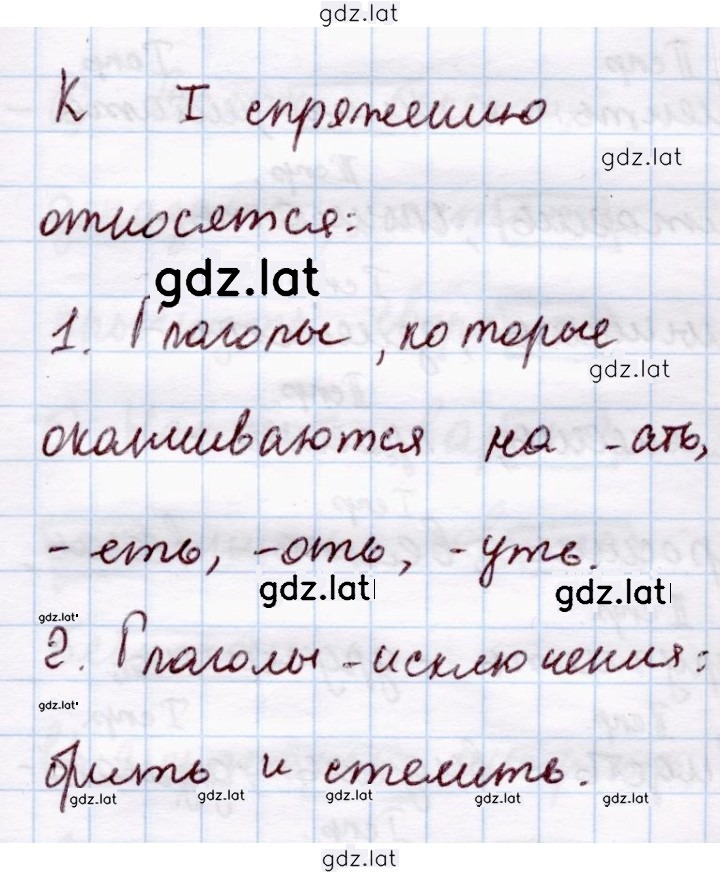 gdz.lat
К I спряжению
gdz.lat
относятся:
gdz.lat
1. Глаголы, которые
gdz.lat
оканчиваются на -ать,
-еть, -оть, -уть.
gdz.lat gdz.lat
gdz.lat
2. Глаголы-исключения:
gdz.lat
брить и стелить.
gdz.lat gdz.lat gdz.lat gdz.lat gdz.lat
gdz.lat